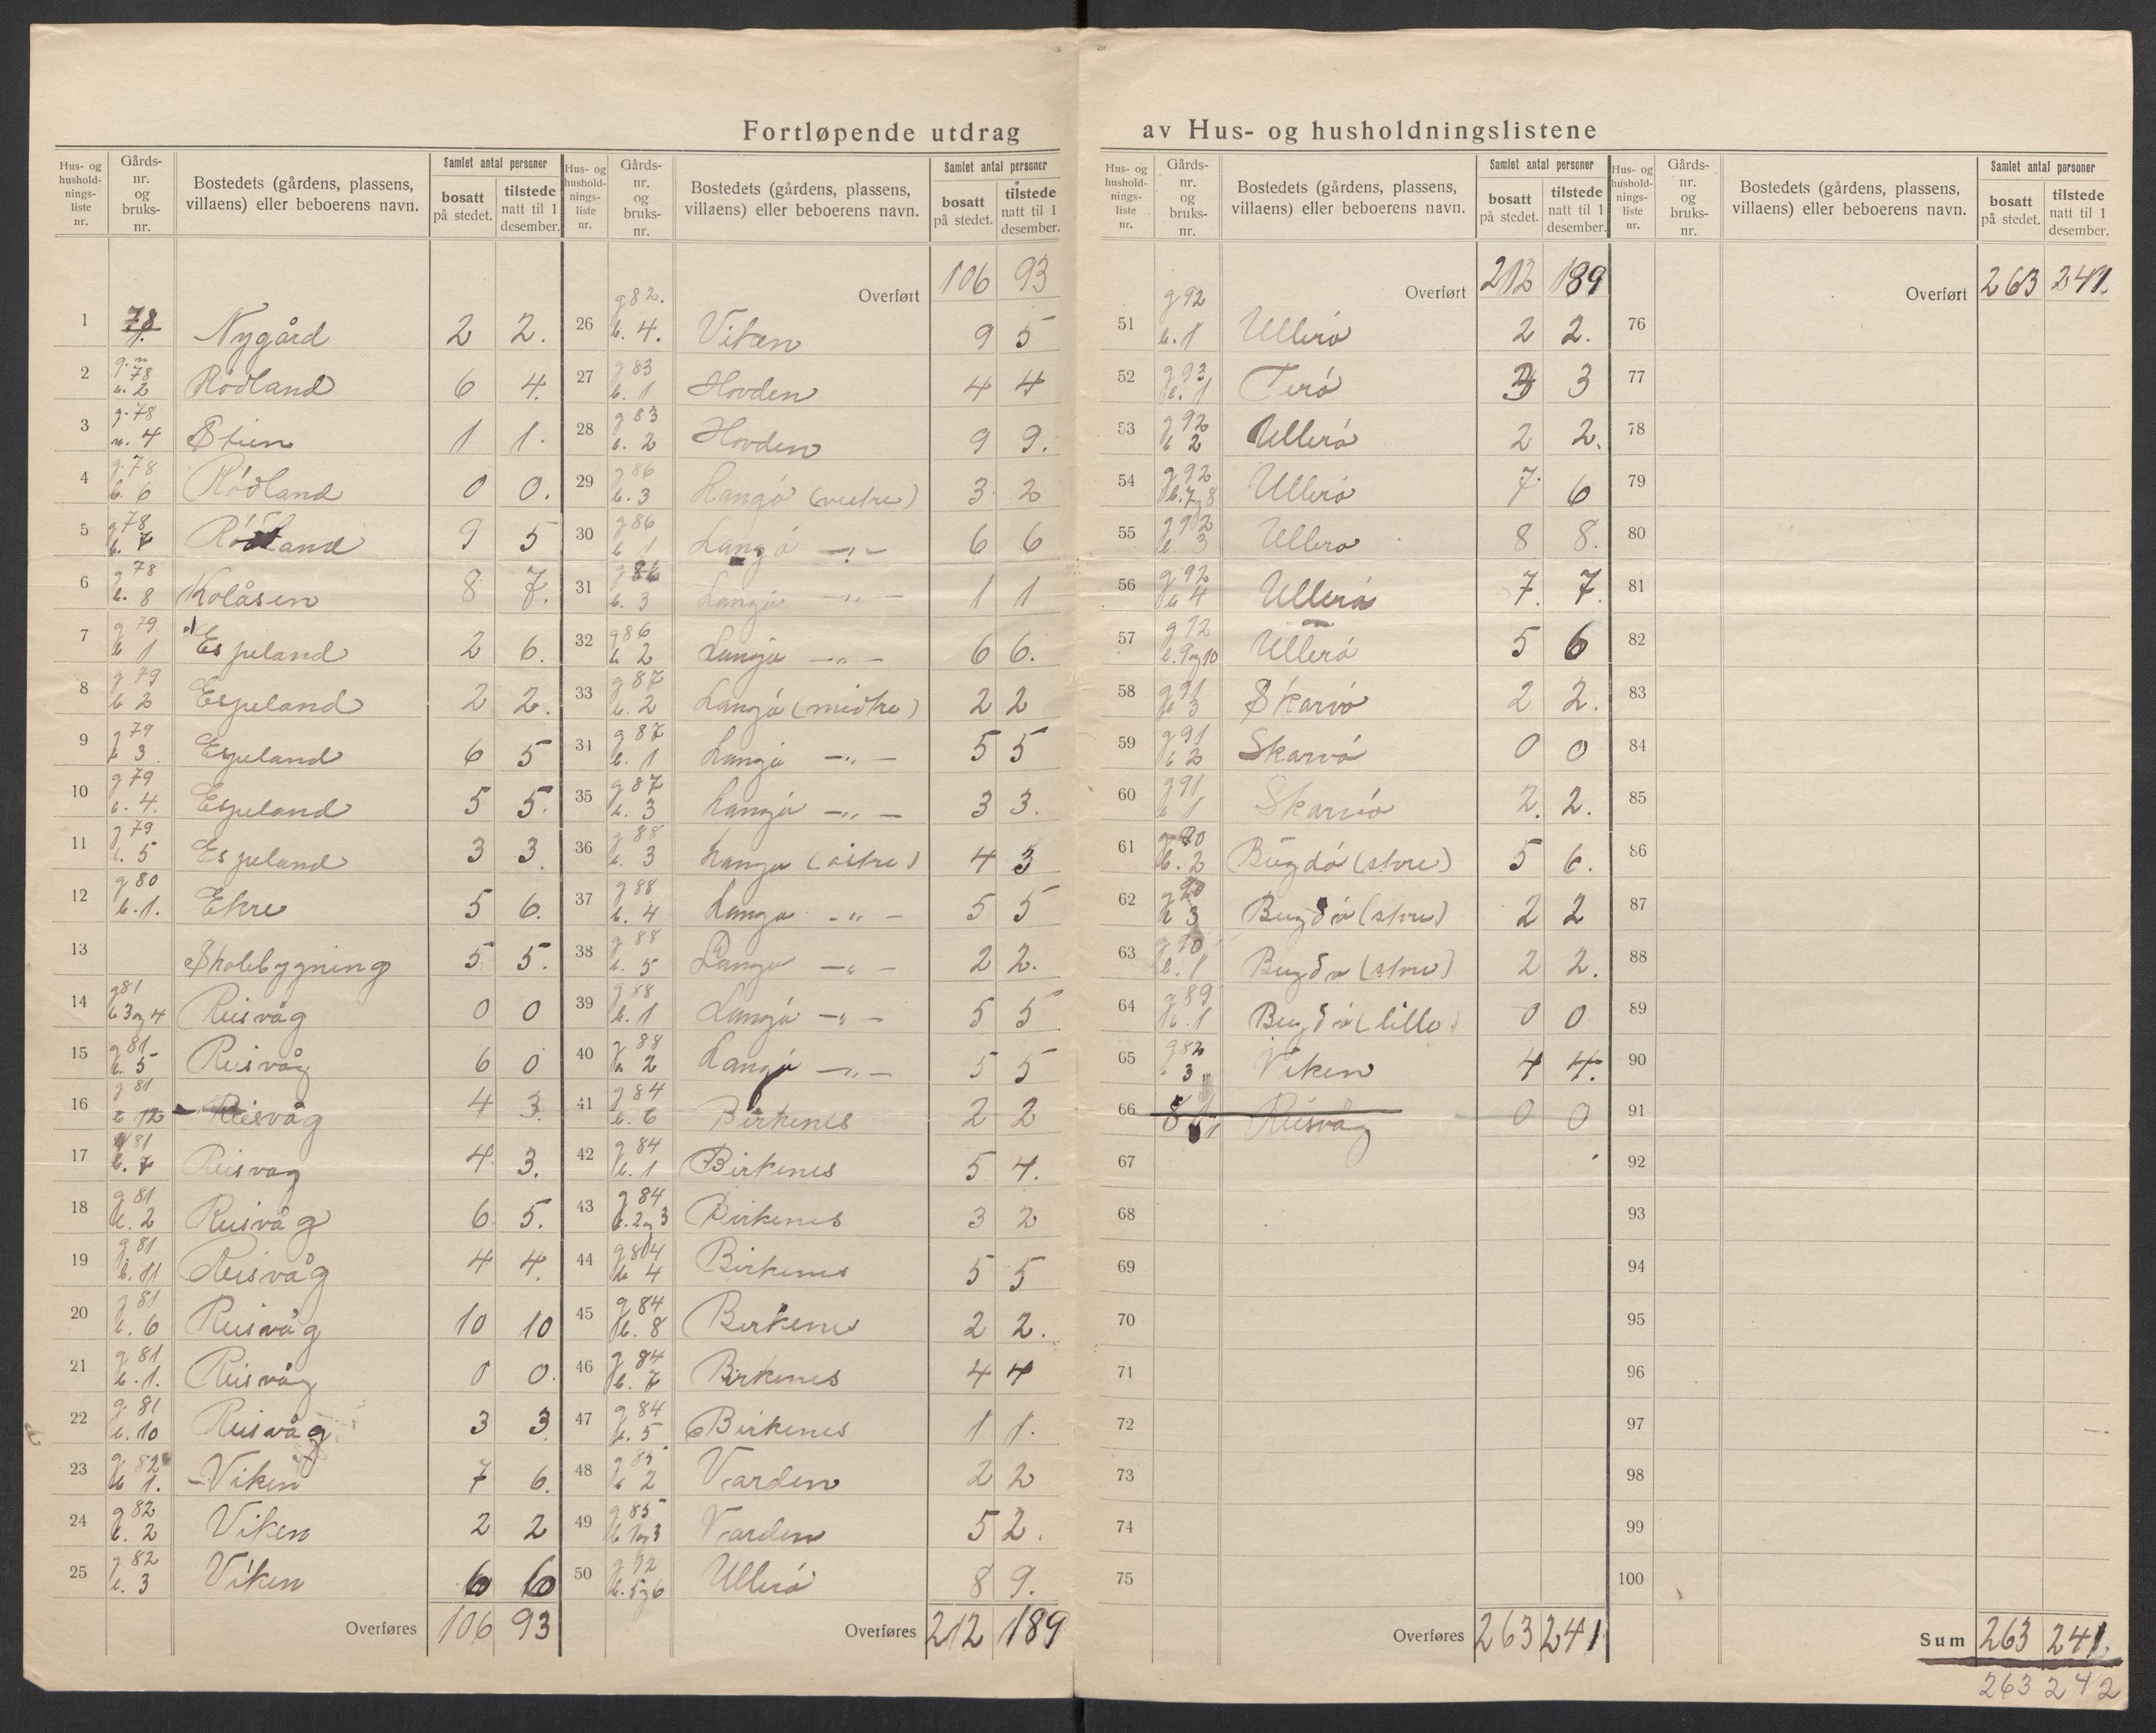 Fortløpende utdrag av Hus- og husholdningslistene
Hus- og hushold- nings- liste nr. | Gårds- nr. og bruks- nr. | Bostedets (gårdens, plassens, villaens) eller beboerens navn. | Samlet antal personer bosatt på stedet. | tilstede natt til 1 desember.
1 78 1. Nygård 2 2.
2 g.n 78 b. 2 Rödland 6 4.
3 g. 78 n. 4 Stien 1 1.
4 g. 78 b. 6 Rödland 0 0.
5 g 78 b. 7 Rödland 9 5
6 g 78 b. 8 Kolåsen 8 7.
7 g 79 b 1 Espeland 2 6.
8 g 79 b 2 Espeland 2 2.
9 g 79 b 3 Espeland 6 5
10 g 79 b. 4. Espeland 5 5.
11 g 79 b. 5 Espeland 3 3.
12 g 80 b. 1. Ekre 5 6.
13 Skolebygning 5 5.
14 g 81 b 3 og 4 Reisvåg 0 0
15 g 81 b. 5 Reisvåg 6 0
16 g 81 b 12 Reisvåg 4 3.
17 g 81 b. 7 Reisvag 4 3.
18 g 81 b. 2 Reisvåg 6 5.
19 g 81 b. 11 Reisvåg 4 4.
20 g 81 b. 6 Reisvåg 10 10
21 g 81 b. 1. Reisvåg 0 0.
22 g. 81 b. 10 Reisvåg 3 3
23 g. 82 b 1. Viken 7 6.
24 g 82 b. 2 Viken 2 2
25 g 82 b. 3 Viken 6 6
Overføres 106 93
Hus- og hushold- nings- liste nr. | Gårds- nr. og bruks- nr. | Bostedets (gårdens, plassens, villaens) eller beboerens navn. | Samlet antal personer bosatt på stedet. | tilstede natt til 1 desember.
Overført 106 93
26 g 82. b. 4. Viken 9 5
27 g 83 b. 1 Hovden 4 4
28 g 83 b. 2 Hovden 9 9.
29 g 86 b. 3 Langö (vestre) 3 2
30 g 86 b 1 Langö —„— 6 6
31 g 86 b. 3 Langö —„— 1 1
32 g 86 b 2 Langö —„— 6 6.
33 g 87 b. 2 Langö (midtre) 2 2
31 g 87 b. 1 Langö —„— 5 5
35 g 87 b. 3 Langö —„— 3 3.
36 g 88 b. 3 Langö (östre) 4 3
37 g 88 b. 4 Langö —„— 5 5
38 g 88 b. 5 Langö —„— 2 2.
39 g 88 b. 1 Langö —„— 5 5
40 g 88 b 2 Langö —„— 5 5
41 g 84 b. 6 Birkenes 2 2
42 g 84 b. 1 Birkenes 5 4.
43 g 84 b. 2 og 3 Birkenes 3 2
44 g 84 b 4 Birkenes 5 5
45 g 84 b. 8 Birkenes 2 2.
46 g 84 b. 7 Birkenes 4 4
47 g 84 b. 5 Birkenes 1 1.
48 g 85 b 2 Varden 2 2
49 g 85 b 1 og 3 Varden 5 2.
50 g 92 b. 5 og 6 Ullerö 8 9.
Overføres 212 189
Hus- og hushold- nings- liste nr. | Gårds- nr. og bruks- nr. | Bostedets (gårdens, plassens, villaens) eller beboerens navn. | Samlet antal personer bosatt på stedet. | tilstede natt til 1 desember.
Overført 212 189
51 g 92 b. 1 Ullerö 2 2.
52 g 93 b. 1 Terö 3 3
53 g 92 b 2 Ullerö 2 2.
54 g 92 b. 7 og 8 Ullerö 7 6
55 g 92 b. 3 Ullerö 8 8.
56 g 92 b 4 Ullerö 7. 7.
57 g 92 b. 9 og 10 Ullerö 5 6
58 g 91 b 3 Skarvö 2 2.
59 g 91 b 2 Skarvö 0 0
60 g 91 b 1 Skarvö 2. 2.
61 g 90 b. 2 Bugdö (store) 5 6.
62 g 90 b 3 Bugdö (store) 2 2
63 g 90 b. 1 Bugdö (store) 2 2.
64 g 89 b. 1 Bugdö (lille) 0 0
65 g 82 3 Viken 4 4.
66 81 1 Reisvåg 0 0
67
68
69
70
71
72
73
74
75
Overføres 263 241
Hus- og hushold- nings- liste nr. | Gårds- nr. og bruks- nr. | Bostedets (gårdens, plassens, villaens) eller beboerens navn. | Samlet antal personer bosatt på stedet. | tilstede natt til 1 desember.
Overført 263 241.
76
77
78
79
80
81
82
83
84
85
86
87
88
89
90
91
92
93
94
95
96
97
98
99
100
Sum 263 241.
263 242